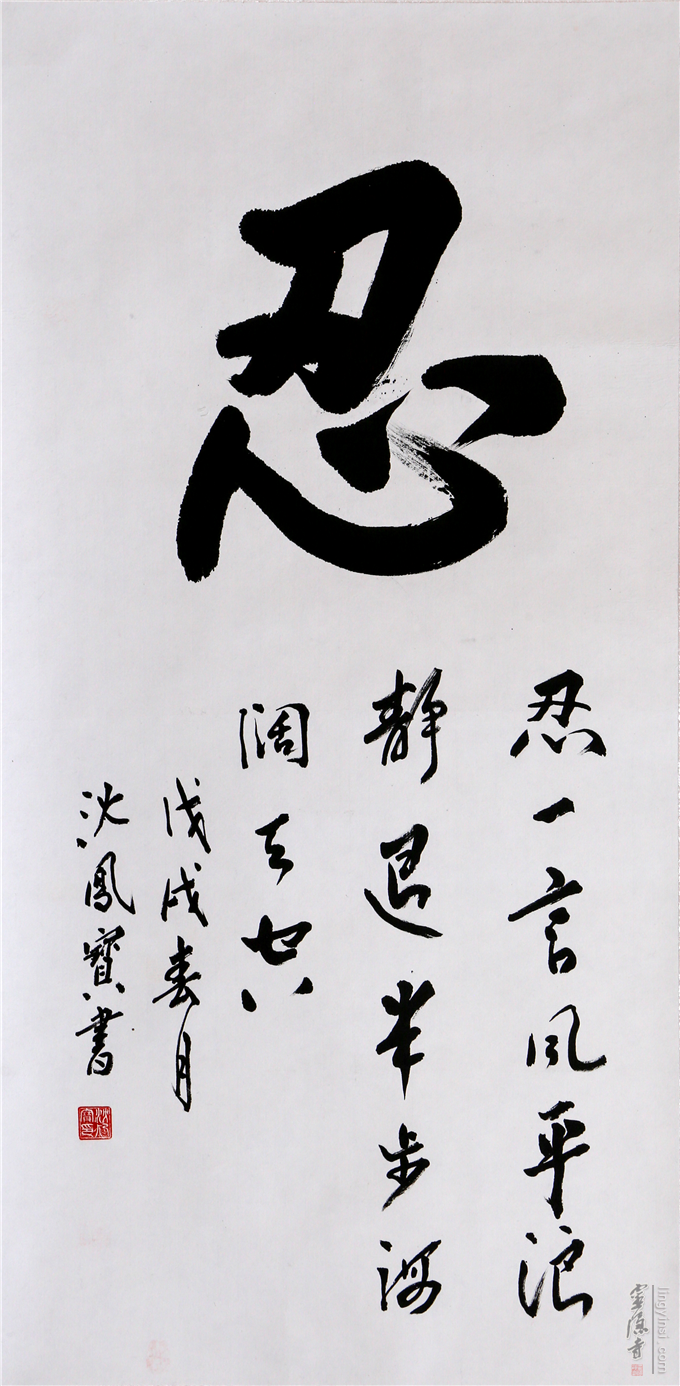 忍
忍一言风平浪
静退半步海
阔天空
戊戌春月
沈鳳寶書
靈隱寺
lingyinsi.com